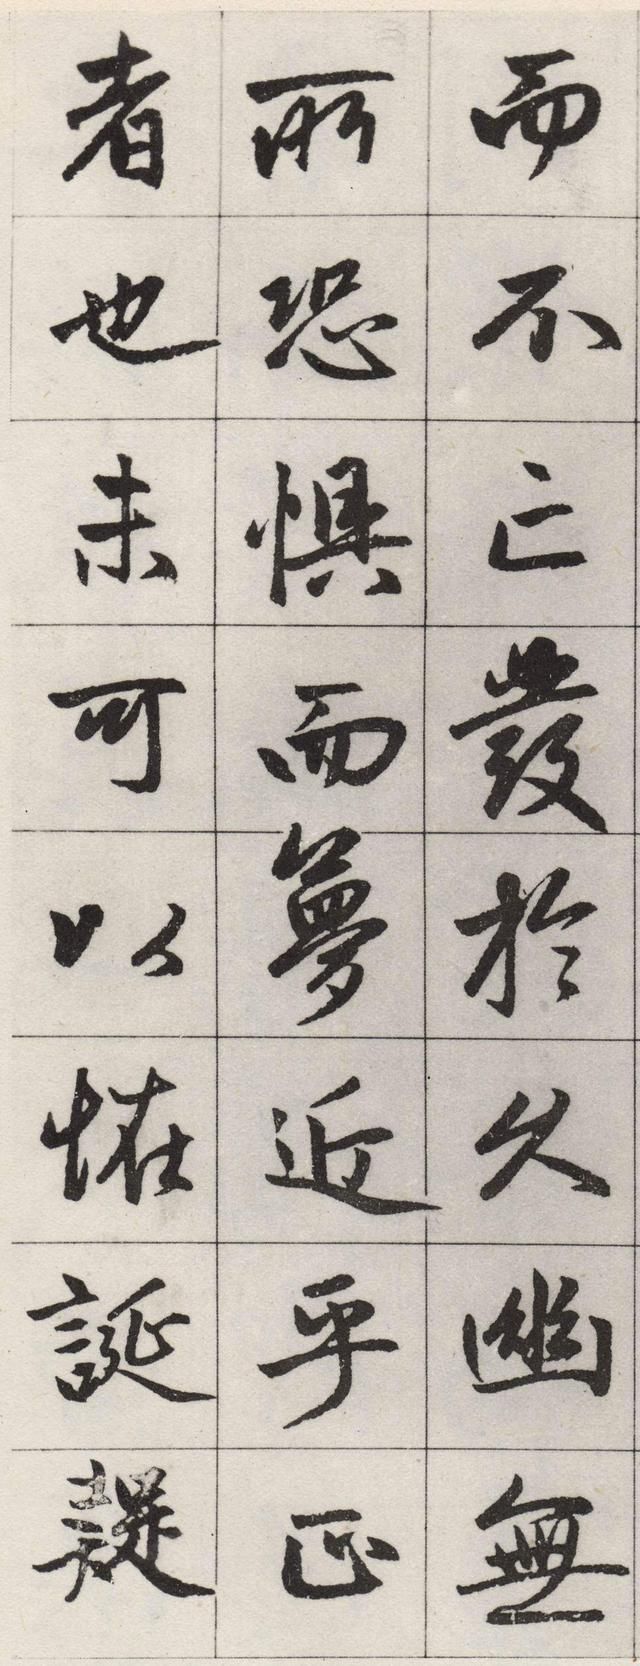 而不亡發於久幽無
所恐懼而夢近乎正
者也未可以恠誕疑